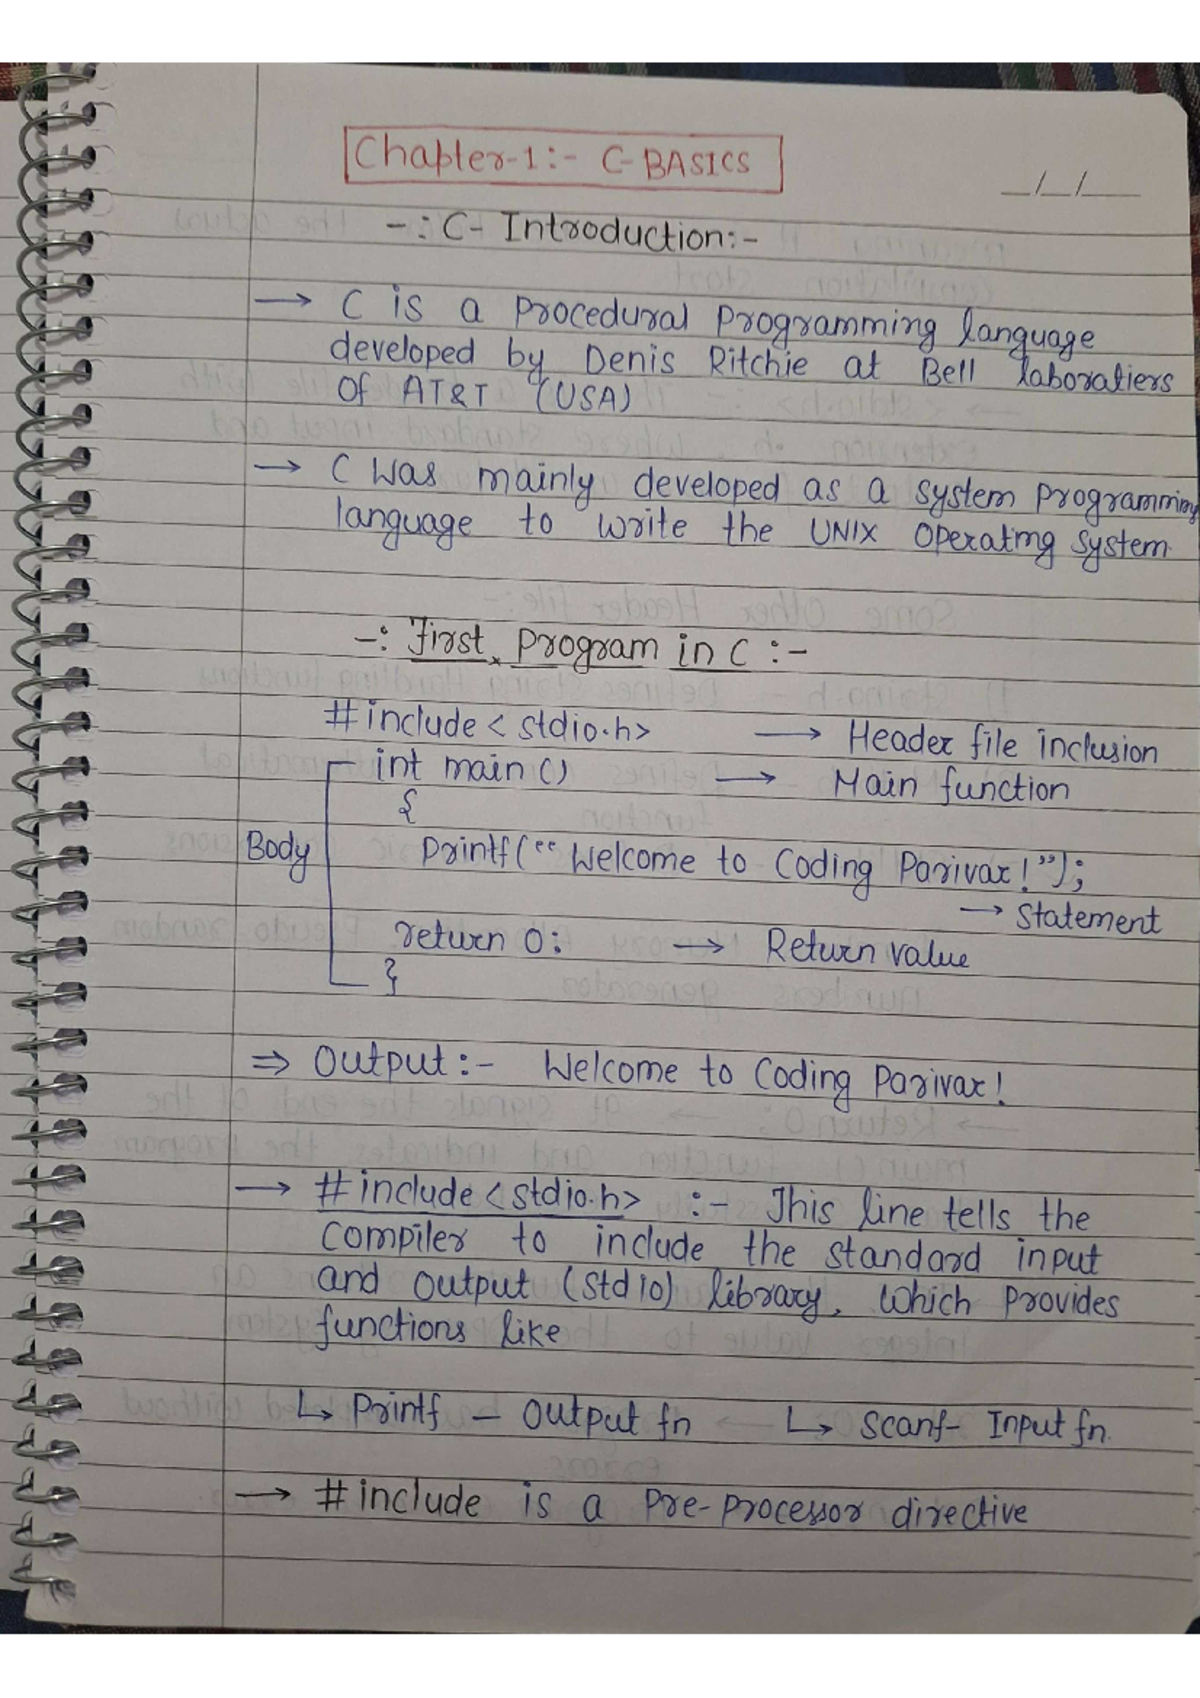 Chapter-1:- C-BASICS
_/_/__
-: C- Introduction:-
→ C is a Procedural Programming language
developed by Denis Ritchie at Bell laboratiers
Of AT&T (USA)
→ C Was mainly developed as a system programming
language to write the UNIX Operating system.
-: First Program in C :-
#include < stdio.h> → Header file inclusion
int main () → Main function
{
Body Printf("Welcome to Coding Parivar!");
→ Statement
return 0; → Return value
}
⇒ Output:- Welcome to Coding Parivar!
→ #include <stdio.h> :- This line tells the
Compiler to include the standard input
and output (std io) library, Which provides
functions like
↳ Printf - Output fn ↳ Scanf- Input fn.
→ #include is a Pre-processor directive